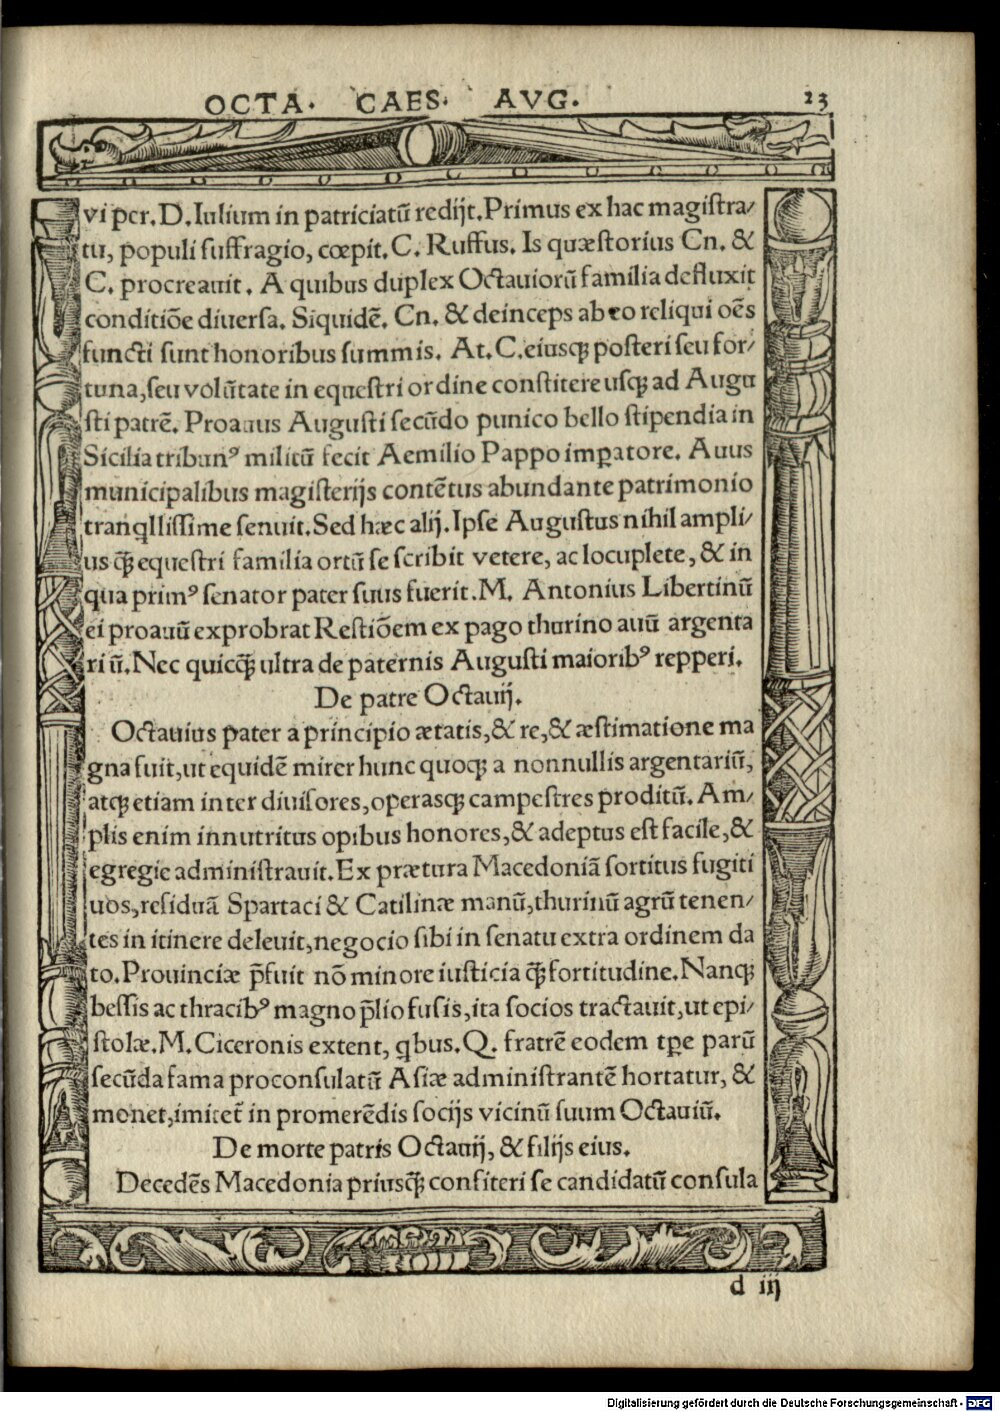 OCTA. CAES. AVG. 23
vi per. D. Iulium in patriciatũ redijt. Primus ex hac magiſtra⸗
tu, populi ſuffragio, cœpit. C. Ruffus. Is quæſtorius Cn. &
C. procreauit. A quibus duplex Octauiorũ familia defluxit
conditiõe diuerſa. Siquidẽ. Cn. & deinceps ab eo reliqui oẽs
functi ſunt honoribus ſummis. At. C. eiuſqꝫ poſteri ſeu for⸗
tuna, ſeu volũtate in equeſtri ordine conſtitere uſqꝫ ad Augu
ſti patrẽ. Proauus Auguſti ſecũdo punico bello ſtipendia in
Sicilia tribunꝰ militũ fecit Aemilio Pappo imꝑatore. Auus
municipalibus magiſterijs contẽtus abundante patrimonio
tranqͥlliſſime ſenuit. Sed hæc alij. Ipſe Auguſtus nihil ampli⸗
us qꝫ̃ equeſtri familia ortũ ſe ſcribit vetere, ac locuplete, & in
qua primꝰ ſenator pater ſuus fuerit. M. Antonius Libertinũ
ei proauũ exprobrat Reſtiõem ex pago thurino auũ argenta
riũ. Nec quicqꝫ̃ ultra de paternis Auguſti maioribꝰ repperi.
De patre Octauij.
Octauius pater a principio ætatis, & re, & æſtimatione ma
gna fuit, ut equidẽ mirer hunc quoqꝫ a nonnullis argentariũ,
atqꝫ etiam inter diuiſores, operaſqꝫ campeſtres proditũ. Am⸗
plis enim innutritus opibus honores, & adeptus eſt facile, &
egregie adminiſtrauit. Ex prætura Macedoniã ſortitus fugiti
uos, reſiduã Spartaci & Catilinæ manũ, thurinũ agrũ tenen⸗
tes in itinere deleuit, negocio ſibi in ſenatu extra ordinem da
to. Prouinciæ p̃fuit nõ minore iuſticia qꝫ̃ fortitudine. Nanqꝫ
beſſis ac thracibꝰ magno p̃lio fuſis, ita ſocios tractauit, ut epi⸗
ſtolæ. M. Ciceronis extent, qͥbus. Q. fratrẽ eodem tꝑe parũ
ſecũda fama proconſulatũ Aſiæ adminiſtrantẽ hortatur, &
monet, imitet̃ in promerẽdis ſocijs vicinũ ſuum Octauiũ.
De morte patris Octauij, & filijs eius.
Decedẽs Macedonia priuſqꝫ̃ confiteri ſe candidatũ conſula
d iij
Digitalisierung gefördert durch die Deutsche Forschungsgemeinschaft - DFG